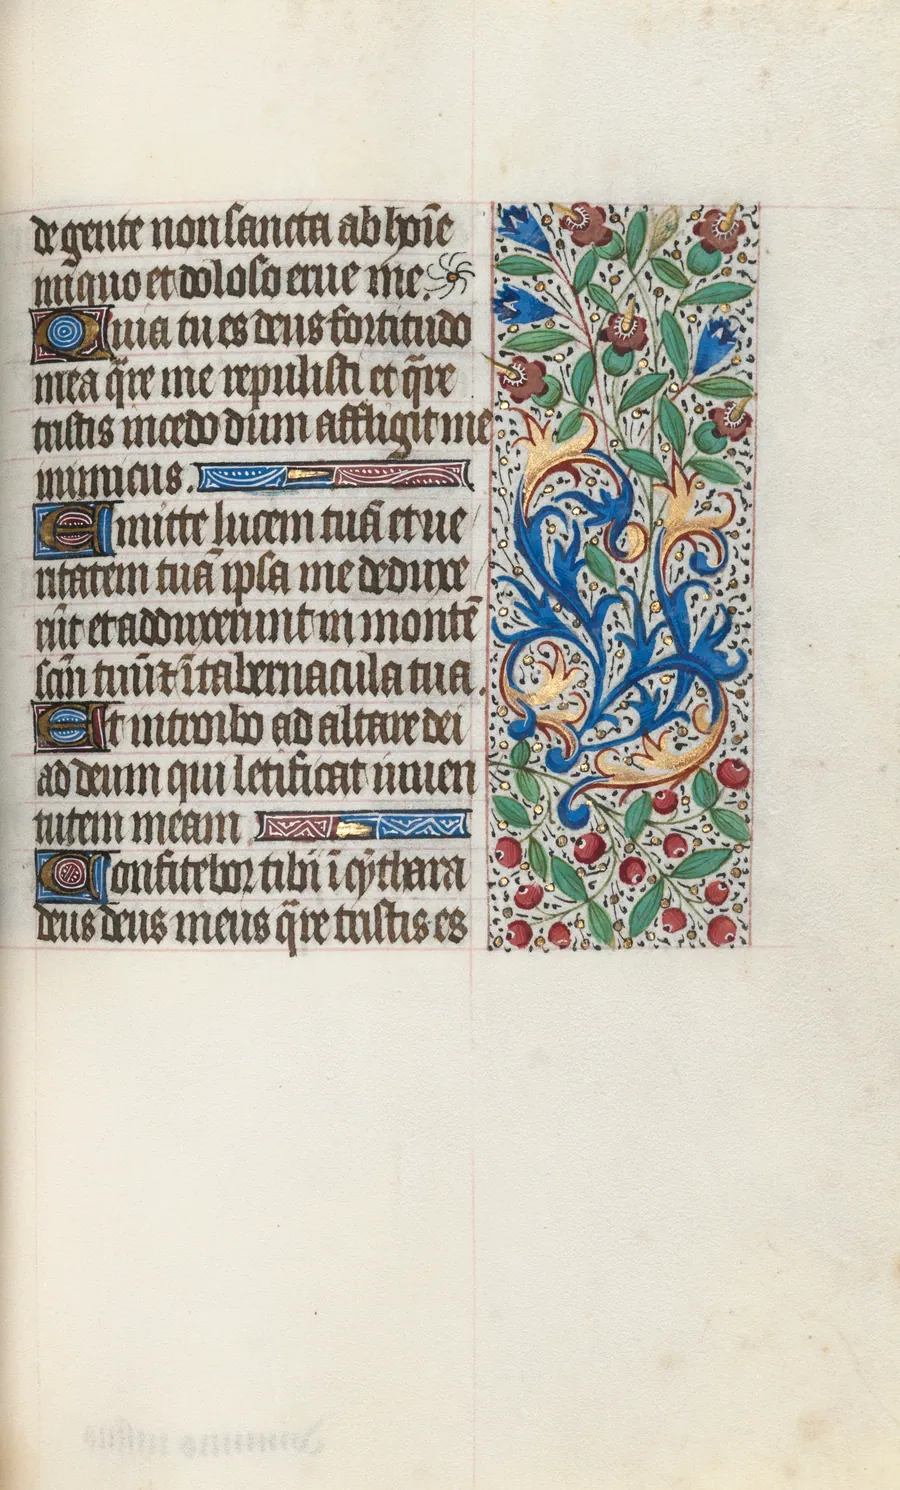 de gente non sancta ab hoīe
iniquo et doloso erue me.
Quia tu es deus fortitudo
mea q̄re me repulisti et q̄re
tristis incedo dum affligit me
inimicus.
Emitte lucem tuā et ue
ritatem tuā ipsa me deduxe
rūt et adduxerunt in montē
scm̄ tuū ⁊ ī tabernacula tua.
Et introibo ad altare dei
ad deum qui letificat iuuen
tutem meam
Confitebor tibi ī cythara
deus deus meus q̄re tristis es